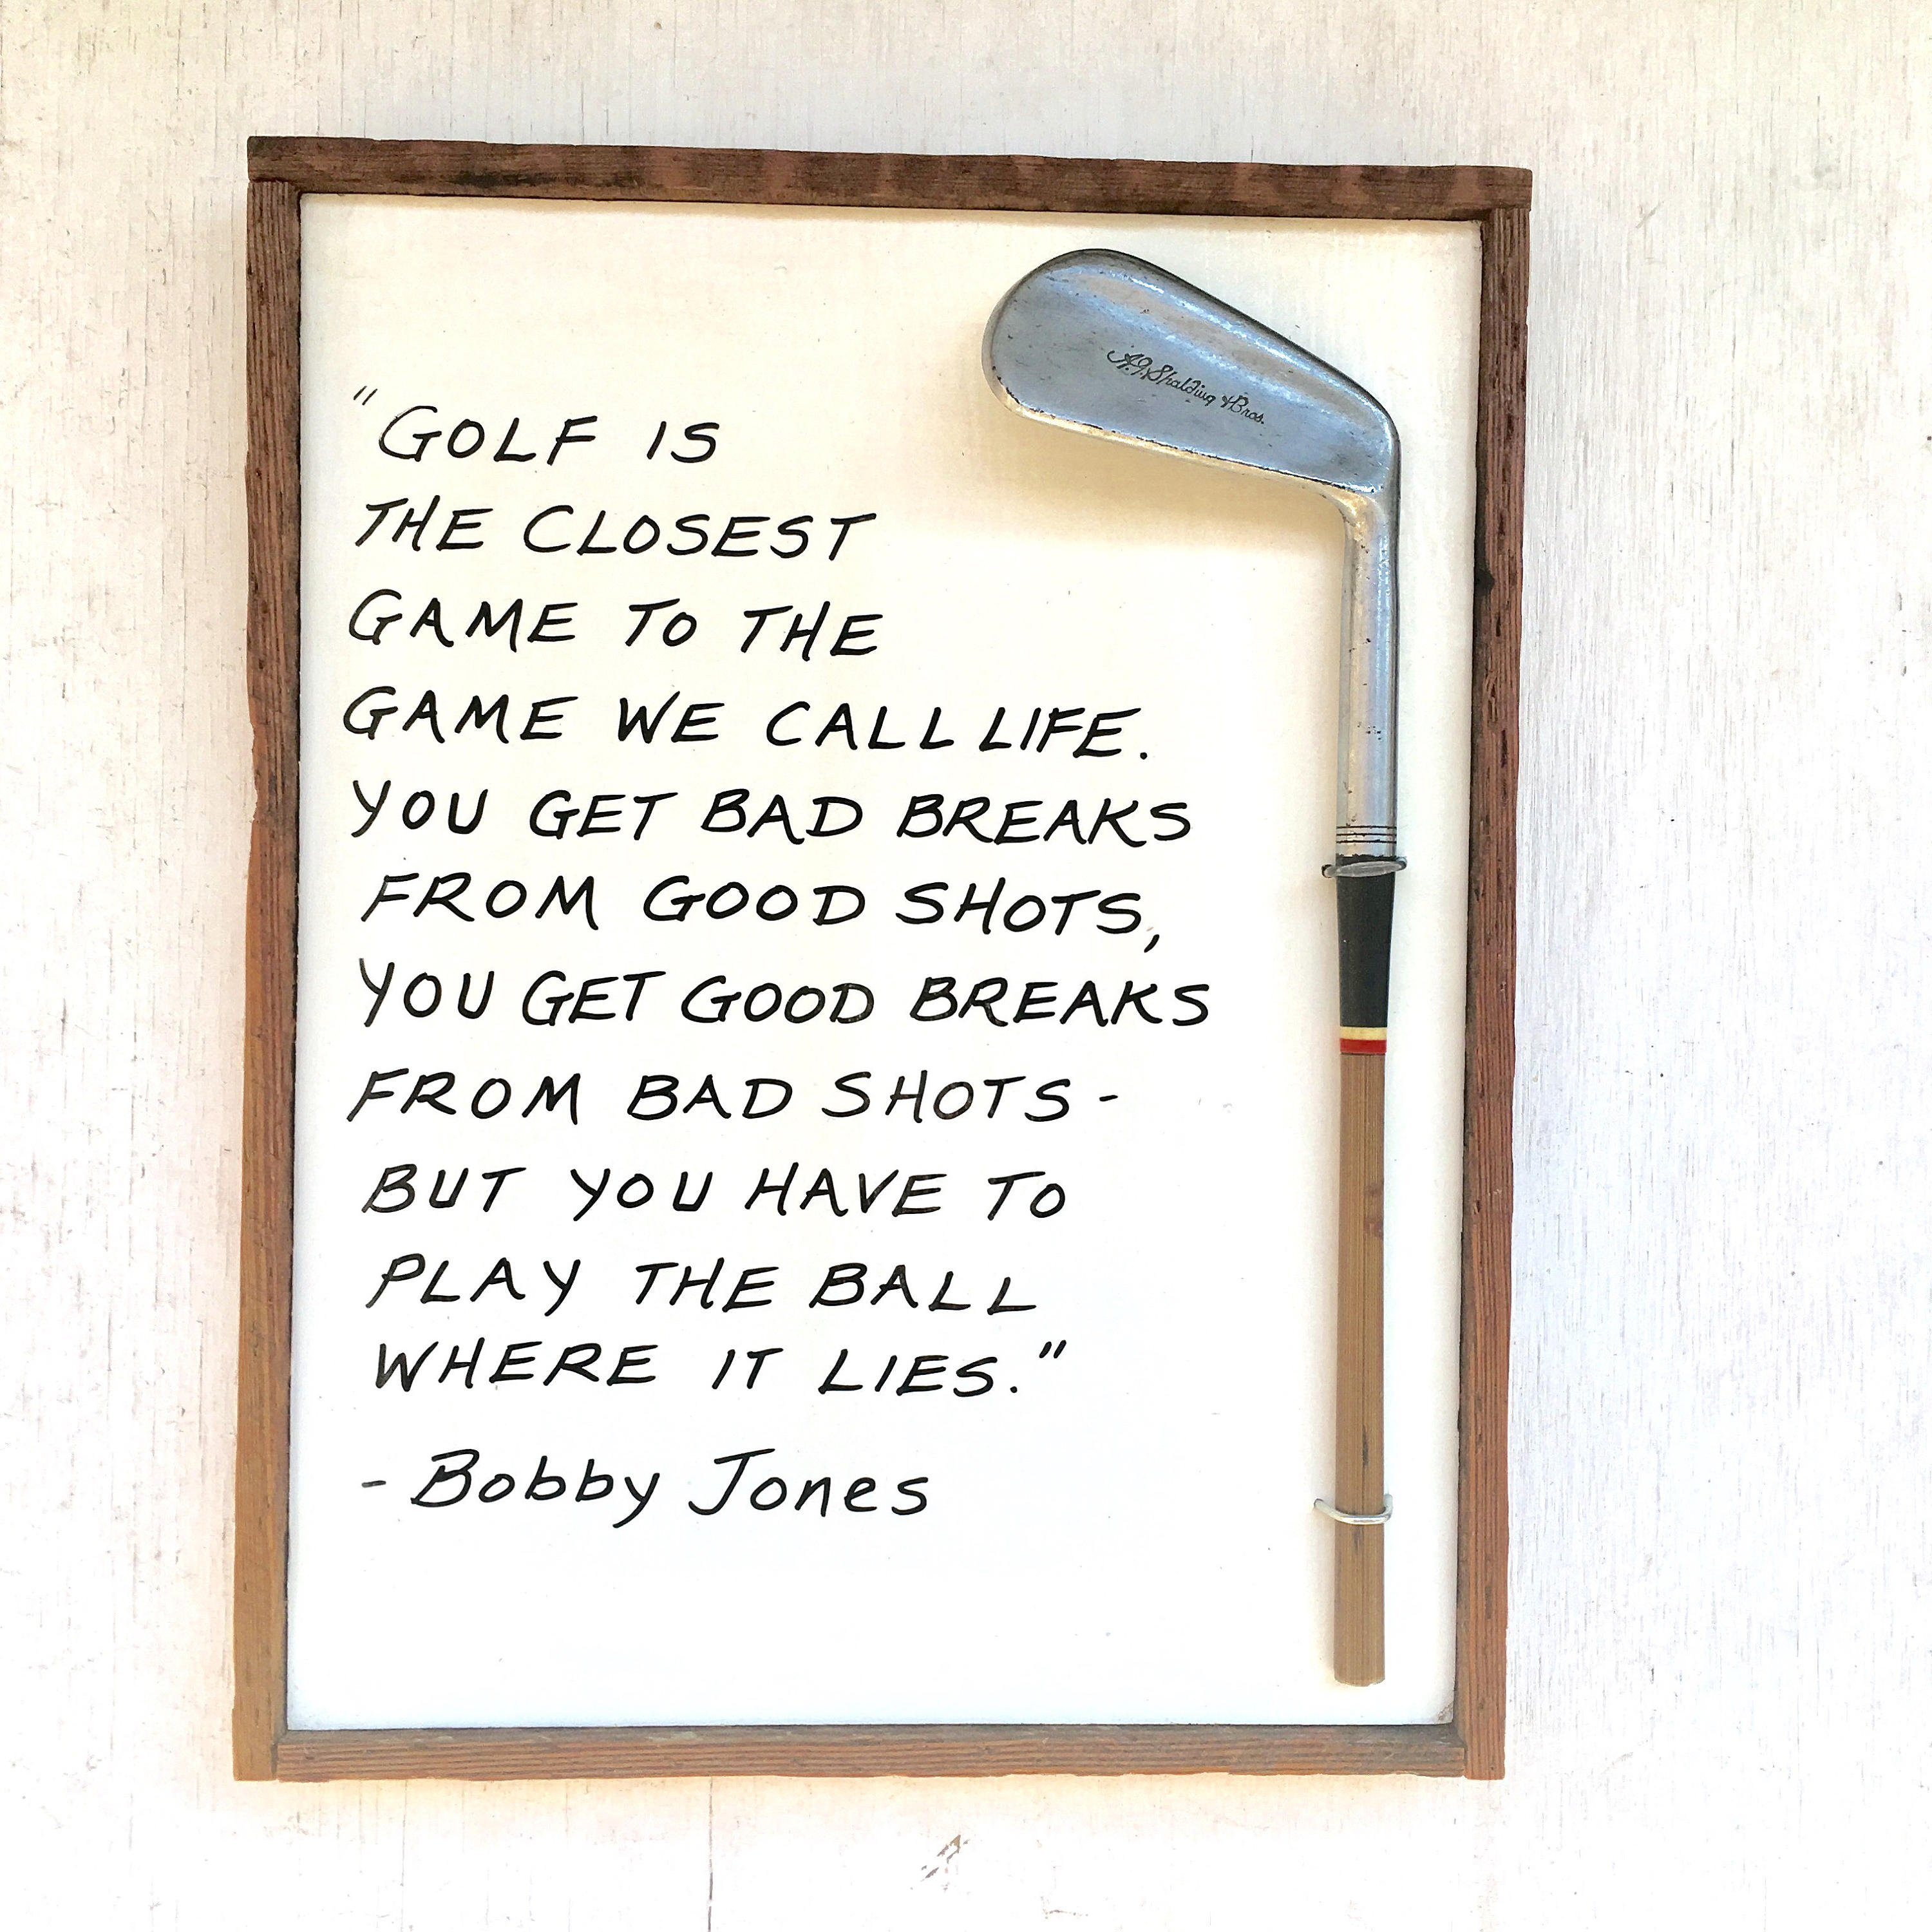 "GOLF IS
THE CLOSEST
GAME TO THE
GAME WE CALL LIFE.
YOU GET BAD BREAKS
FROM GOOD SHOTS,
YOU GET GOOD BREAKS
FROM BAD SHOTS-
BUT YOU HAVE TO
PLAY THE BALL
WHERE IT LIES."
- Bobby Jones
A.G. Spalding & Bros.